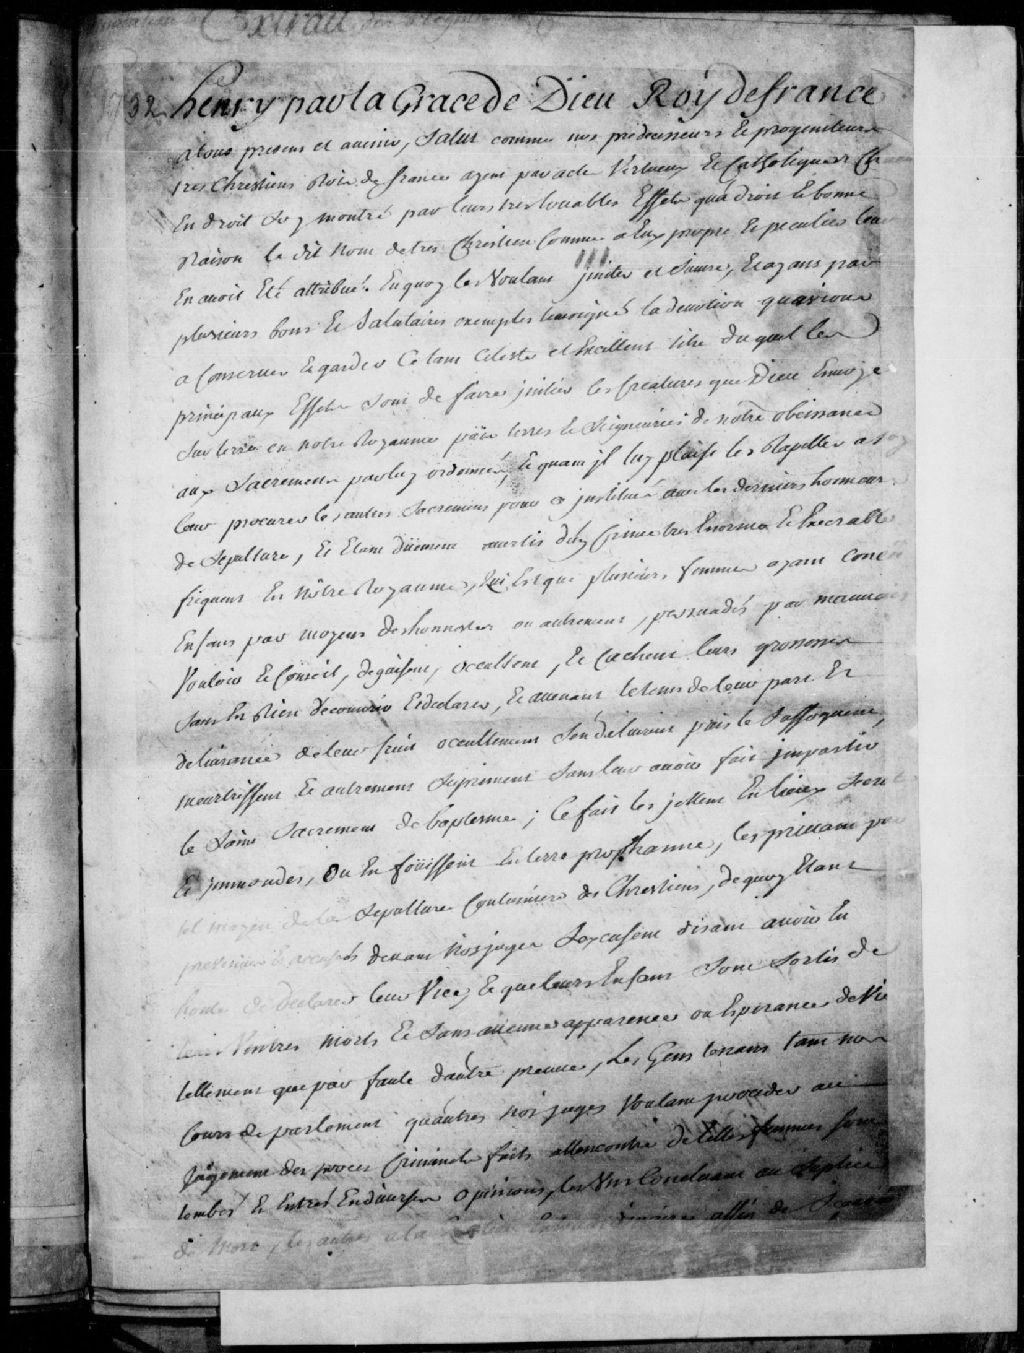 Extrait
1732 henry par la Grace de Dieu Roy de france
a tous presens et avenir, Salut comme nos predecesseurs Et progeniteurs
tres Chrestiens Rois de france ayent par acte Vertueux Et Catholiques
En droit soy montré par leurs tres louables Effets qua droit Et bonne
Raison le dit Nom de tres Chrestien Comme a Eux propre Et peculier leur
En avoit Eté attribué. En quoy les Voulant jmiter et Suivre, Et ayans par
plusieurs bons Et Salutaires exemples temoigné la devotion qu'avions
a Conserver Et garder Ce tant Celeste et Excellent titre duquel les
principaux Effets Sont de faire jnitier les Creatures que Dieu Envoye
Sur terre en notre Royaume païs terres Et Seigneuries de notre obeissance
aux Sacremens par luy ordonnés, Et quant jl luy plaise les Rapeller a soy
leur procurer les autres Sacremens pour a jnstitués avec les derniers honneurs
de Sepulture, Et Etant Düement avertis d'un Crime tres Enorme Et Execrable
frequent En Nôtre Royaume, qui Est que plusieurs femmes ayant conceu
Enfans par moyens deshonnestes ou autrement, persuadés par mauvais
Vouloir Et Conseil, deguisent, occultent, Et Cachent leurs grossesses
Sans En Rien découvrir Et declarer, Et avenant le tems de leur part Et
delivrance de leur fruit occultement S'en délivrent puis le Suffoquent,
meurtrissent Et autrement Supriment Sans leur avoir fait jmpartir
le Saint Sacrement de baptesme; Ce fait les jettent En lieux Secrets
Et jmmondes, ou En foüissent En terre prophanne, les privant par
tel moyen de la Sepulture Coutumiere des Chrestiens, de quoy Etant
prevenües Et accusés devant Nos juges S'excusent disant avoir Eu
honte de declarer leur Vice, Et que leurs Enfans Sont Sortis de
leurs Ventres morts Et Sans aucune apparence ou Esperance de Vie
tellement que par faute d'autre preuve, Les Gens tenans tant nos
Cours de parlement qu'autres Nos juges Voulant proceder au
Jugement des proces Criminels faits allencontre de telles femmes Sont
tombés Et Entrés En diverses opinions, les Uns Concluant au Suplice
de Mort, les autres a la